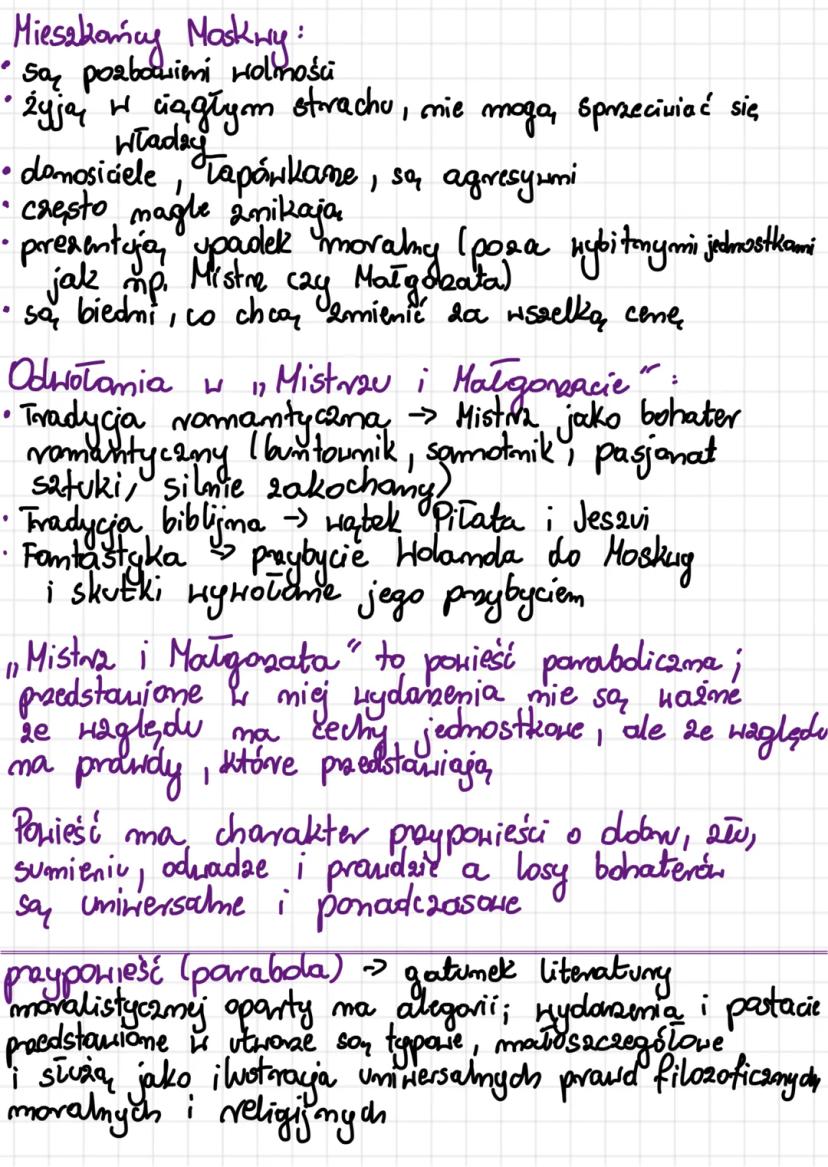 Mieszkańcy Moskwy:
• są pozbawieni wolności
• żyją w ciągłym strachu, nie mogą sprzeciwiać się
władzy
• donosiciele, łapówkarze, są agresywni
• często nagle znikają
• prezentują upadek moralny (poza wybitnymi jednostkami
jak np. Mistrz czy Małgorzata)
• są biedni, co chcą zmienić za wszelką cenę
Odwołania w „Mistrzu i Małgorzacie":
• Tradycja romantyczna → Mistrz jako bohater
romantyczny (buntownik, samotnik, pasjonat
sztuki, silnie zakochany)
• Tradycja biblijna → wątek Piłata i Jeszui
• Fantastyka → przybycie Wolanda do Moskwy
i skutki wywołane jego przybyciem
„Mistrz i Małgorzata" to powieść paraboliczna;
przedstawione w niej wydarzenia nie są ważne
ze względu na cechy jednostkowe, ale ze względu
na prawdy, które przedstawiają
Powieść ma charakter przypowieści o dobru, złu,
sumieniu, odwadze i prawdzie a losy bohaterów
są uniwersalne i ponadczasowe
przypowieść (parabola) → gatunek literatury
moralistycznej oparty na alegorii; wydarzenia i postacie
przedstawione w utworze są typowe, małoszczegółowe
i służą jako ilustracja uniwersalnych prawd filozoficznych
moralnych i religijnych